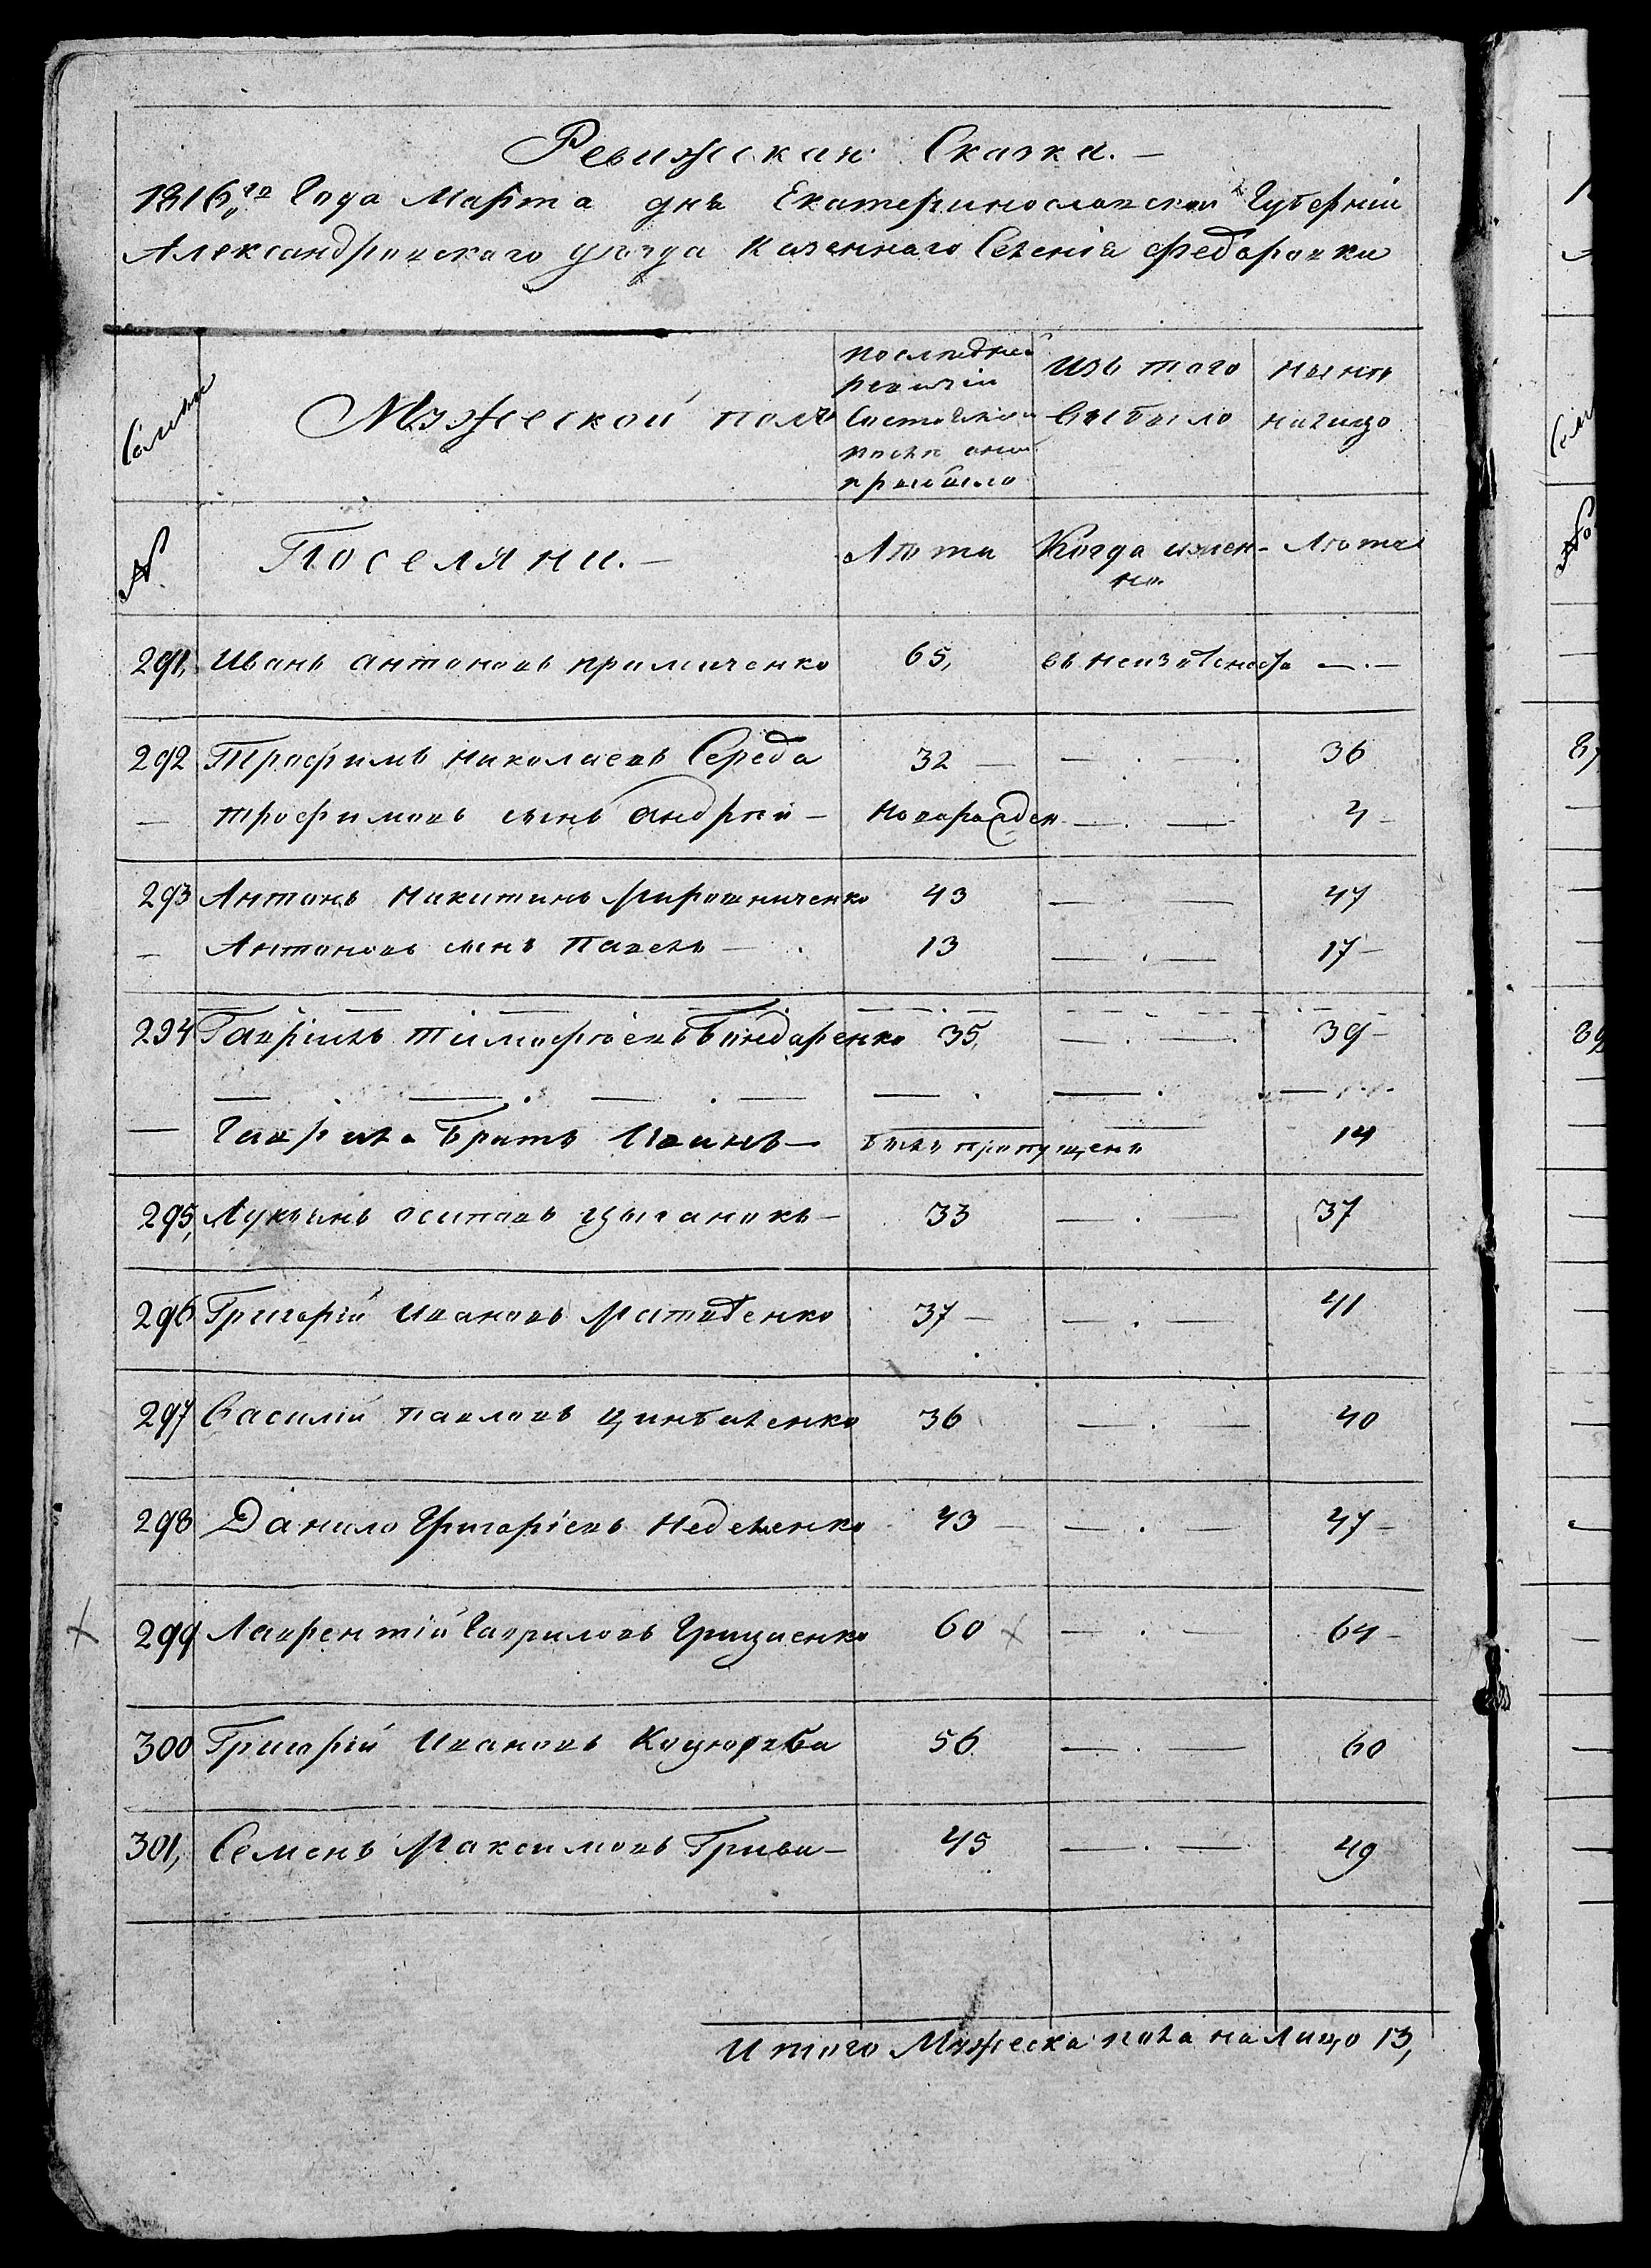 Ревижская Сказка. —
1816,го Года Марта дня Екатеринославской Губерніи
Александровскаго уѣзда Казеннаго Селенія Федоровки
Семьи
Мужеской полъ
последней ревизіи Состояло и после оной прибыло
Изъ того выбыло
нынѣ налицо
№
Поселяни. —
Лѣта
Когда имен- но.
Лѣта
291, Иванъ Антоновъ 65, въ —.—
292 Трофимъ Николаевъ Середа 32 — — . — . 36
— трофимовъ сынъ Андрей — новорожден — . — 4 —
293 Антонъ Никитинъ Мирошниченко 43 — . — 47
— Антоновъ сынъ Павелъ — 13 — . — 17 —
294 Гаврилъ Тимофѣевъ Бондаренко 35, — . — . 39 —
— Гаврила Братъ Иванъ — былъ пропущенъ 14
295, Лукьянъ Осиповъ Цыганокъ — 33 — . — 37
296 Григорій Ивановъ Матвѣенко 37 — — . — 41
297 Василій Павловъ Цинбаленко 36 — . — 40
298 Данило Григоріевъ Неделенко 43 — — . — 47 —
299 Лаврентій Гавриловъ Гриценко 60 — . — 64 —
300 Григорій Ивановъ 56 — . — 60
301, Семенъ Максимовъ Грива — 45 — . — 49
Итого Мужеска пола на лицо 13,